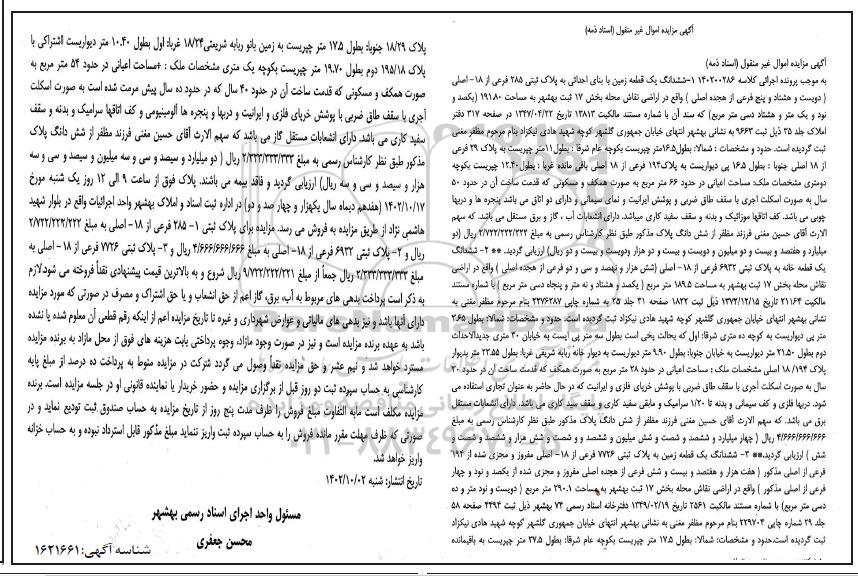 آگهی مزایده اموال غیر منقول (اسناد ذمه)
آگهی مزایده اموال غیر منقول (اسناد ذمه)
به موجب پرونده اجرائی کلاسه ۱۴۰۲۰۰۲۸۶ ۱-ششدانگ یک قطعه زمین با بنای احداثی به پلاک ثبتی ۲۸۵ فرعی از ۱۸- اصلی
( دویست و هشتاد و پنج فرعی از هجده اصلی ) واقع در اراضی نقاش محله بخش ۱۷ ثبت بهشهر به مساحت ۱۹۱.۸۰ (یکصد و
نود و یک متر و هشتاد دسی متر مربع) که سند آن با شماره مستند مالکیت ۱۳۸۱۳ تاریخ ۱۳۴۷/۰۴/۲۲ در صفحه ۳۱۷ دفتر
املاک جلد ۳۵ ذیل ثبت ۹۶۶۳ به نشانی بهشهر انتهای خیابان جمهوری گلشهر کوچه شهید هادی نیکزاد بنام مرحوم مظفر مغنی
ثبت گردیده است. حدود و مشخصات : شمالا: بطول۱۶.۵متر چپریست بکوچه عام شرقا : بطول۱۱متر چپریست به پلاک ۲۹ فرعی
از ۱۸ اصلی جنوبا : بطول ۱۶.۵ پی دیواریست به پلاک۱۹۴ فرعی از ۱۸ اصلی باقی مانده غربا : بطول۱۲.۴۰ چپریست بکوچه
دومتری مشخصات ملک: مساحت اعیانی در حدود ۶۶ متر مربع به صورت همکف و مسکونی که قدمت ساخت آن در حدود ۵۰
سال به صورت اسکلت آجری با سقف طاق ضربی و پوشش ایرانیت و نمای سیمانی و دارای دو اتاق می باشد پنجره ها و دربها
چوبی می باشد. کف اتاقها موزائیک و بدنه و سقف سفید کاری میباشد. دارای انشعابات آب ، گاز و برق مستقل می باشد. که سهم
الارث آقای حسین مغنی فرزند مظفر از شش دانگ پلاک مذکور طبق نظر کارشناس رسمی به مبلغ ۲/۷۲۲/۲۲۲/۲۲۲ ریال (دو
میلیارد و هفتصد و بیست و دو میلیون و دویست و بیست و دو هزار ودویست و بیست و دو ریال) ارزیابی گردید. ** ۲- ششدانگ
یک قطعه خانه به پلاک ثبتی ۶۹۳۲ فرعی از ۱۸- اصلی (شش هزار و نهصد و سی و دو فرعی از هجده اصلی ) واقع در اراضی
نقاش محله بخش ۱۷ ثبت بهشهر به مساحت ۱۸۹.۵ متر مربع ( یکصد و هشتاد و نه متر و پنجاه دسی متر مربع ) با شماره مستند
مالکیت ۲۱۱۶۴ تاریخ ۱۳۷۲/۱۲/۱۵ ذیل ثبت ۱۸۲۲ صفحه ۳۱ جلد ۲۵ به شماره چاپی ۲۲۷۶۲۸۷ بنام مرحوم مظفر مغنی به
نشانی بهشهر انتهای خیابان جمهوری گلشهر کوچه شهید هادی نیکزاد ثبت گردیده است. حدود و مشخصات: شمالا: بطول ۲.۶۵
متر پی دیواریست به کوچه ده متری شرقا: اول که بحالت پخی است بطول سه متر پی ایست به خیابان ۳۰ متری جدیدالاحداث
دوم بطول ۲۱.۵۰ متر دیواریست به خیابان جنوبا: بطول ۹.۹۰ متر دیواریست به دیوار خانه ربابه شریفی غربا: بطول ۲۲.۵۵ متر بدیوار
پلاک ۱۹۴/ ۱۸ اصلی مشخصات ملک : مساحت اعیانی در حدود ۲۸ متر مربع به صورت همکف که قدمت ساخت آن در حدود ۳۰
سال به صورت اسکلت آجری با سقف طاق ضربی با پوشش خرپای فلزی و ایرانیت که در حال حاضر به عنوان تجاری استفاده می
شود. دربها فلزی و کف سیمانی و بدنه تا ۱/۲۰ سرامیک و مابقی سفید کاری و سقف سفید کاری می باشد. دارای انشعابات مستقل
برق می باشد. که سهم الارث آقای حسین مغنی فرزند مظفر از شش دانگ پلاک مذکور طبق نظر کارشناس رسمی به مبلغ
۴/۶۶۶/۶۶۶/۶۶۶ ریال ( چهار میلیارد و ششصد و شصت و شش میلیون و ششصد و و شصت و شش هزار و ششصد و شصت و
شش ) ارزیابی گردید.** ۳- ششدانگ یک قطعه زمین به پلاک ثبتی ۷۷۲۶ فرعی از ۱۸- اصلی مفروز و مجزی شده از ۱۹۴
فرعی از اصلی مذکور ( هفت هزار و هفتصد و بیست و شش فرعی از هجده اصلی مفروز و مجزی شده از یکصد و نود و چهار
فرعی از اصلی مذکور ) واقع در اراضی نقاش محله بخش ۱۷ ثبت بهشهر به مساحت ۲۹۰.۱ متر مربع ( دویست و نود متر و ده
دسی متر مربع) با شماره مستند مالکیت ۲۵۶۱ تاریخ ۱۳۴۹/۰۲/۱۹ دفترخانه اسناد رسمی ۷۴ بهشهر ذیل ثبت ۴۴۹۴ صفحه ۵۸
جلد ۲۹ شماره چاپی ۲۲۹۷۰۴ بنام مرحوم مظفر مغنی به نشانی بهشهر انتهای خیابان جمهوری گلشهر کوچه شهید هادی نیکزاد
ثبت گردیده است.حدود و مشخصات: شمالا: بطول ۱۷.۵ متر چپریست بکوچه عام شرقا: بطول ۲۷.۵ متر چپریست به باقیمانده
پلاک ۱۸/۲۹ جنوبا: بطول ۱۷.۵ متر چپریست به زمین بانو ربابه شریعتی۱۸/۲۴ غربا: اول بطول ۱۰.۴۰ متر دیواریست اشتراکی با
پلاک ۱۹۵/۱۸ دوم بطول ۱۹.۷۰ متر چپریست بکوچه یک متری مشخصات ملک : +مساحت اعیانی در حدود ۵۴ متر مربع به
صورت همکف و مسکونی که قدمت ساخت آن در حدود ۴۰ سال که در حدود ده سال پیش مرمت شده است به صورت اسکلت
آجری با سقف طاق ضربی با پوشش خرپای فلزی و ایرانیت و دربها و پنجره ها آلومینیومی و کف اتاقها سرامیک و بدنه و سقف
سفید کاری می باشد. دارای انشعابات مستقل گاز می باشد که سهم الارث آقای حسین مغنی فرزند مظفر از شش دانگ پلاک
مذکور طبق نظر کارشناس رسمی به مبلغ ۲/۳۳۳/۳۳۳/۳۳۳ ریال ( دو میلیارد و سیصد و سی و سه میلیون و سیصد و سی و سه
هزار و سیصد و سی و سه ریال) ارزیابی گردید و فاقد بیمه می باشند. پلاک فوق از ساعت ۹ الی ۱۲ روز یک شنبه مورخ
۱۴۰۲/۱۰/۱۷ (هفدهم دیماه سال یکهزار و چهار صد و دو) در اداره ثبت اسناد و املاک بهشهر واحد اجرائیات واقع در بلوار شهید
هاشمی نژاد از طریق مزایده به فروش می رسد. مزایده برای پلاک ثبتی ۱- ۲۸۵ فرعی از ۱۸- اصلی به مبلغ ۲/۷۲۲/۲۲۲/۲۲۲
ریال و ۲- پلاک ثبتی ۶۹۳۲ فرعی از ۱۸- اصلی به مبلغ ۴/۶۶۶/۶۶۶/۶۶۶ ریال و ۳- پلاک ثبتی ۷۷۲۶ فرعی از ۱۸- اصلی به
مبلغ ۲/۳۳۳/۳۳۳/۳۳۳ ریال جمعاً از مبلغ ۹/۷۲۲/۲۲۲/۲۲۱ ریال شروع و به بالاترین قیمت پیشنهادی نقداً فروخته می شود.لازم
به ذکر است پرداخت بدهی های مربوط به آب، برق، گاز اعم از حق انشعاب و یا حق اشتراک و مصرف در صورتی که مورد مزایده
دارای آنها باشد و نیز بدهی های مالیاتی و عوارض شهرداری و غیره تا تاریخ مزایده اعم از اینکه رقم قطعی آن معلوم شده یا نشده
باشد به عهده برنده مزایده است و نیز در صورت وجود مازاد، وجوه پرداختی بابت هزینه های فوق از محل مازاد به برنده مزایده
مسترد خواهد شد و نیم عشر و حق مزایده نقداً وصول می گردد شرکت در مزایده منوط به پرداخت ده درصد از مبلغ پایه
کارشناسی به حساب سپرده ثبت دو روز قبل از برگزاری مزایده و حضور خریدار یا نماینده قانونی او در جلسه مزایده است. برنده
مزایده مکلف است مابه التفاوت مبلغ فروش را ظرف مدت پنج روز از تاریخ مزایده به حساب صندوق ثبت تودیع نماید و در
صورتی که ظرف مهلت مقرر مانده فروش را به حساب سپرده ثبت واریز ننماید مبلغ مذکور قابل استرداد نبوده و به حساب خزانه
واریز خواهد شد.
تاریخ انتشار: شنبه ۱۴۰۲/۱۰/۰۲
مسئول واحد اجرای اسناد رسمی بهشهر
محسن جعفری
شناسه آگهی: ۱۶۲۱۶۶۱